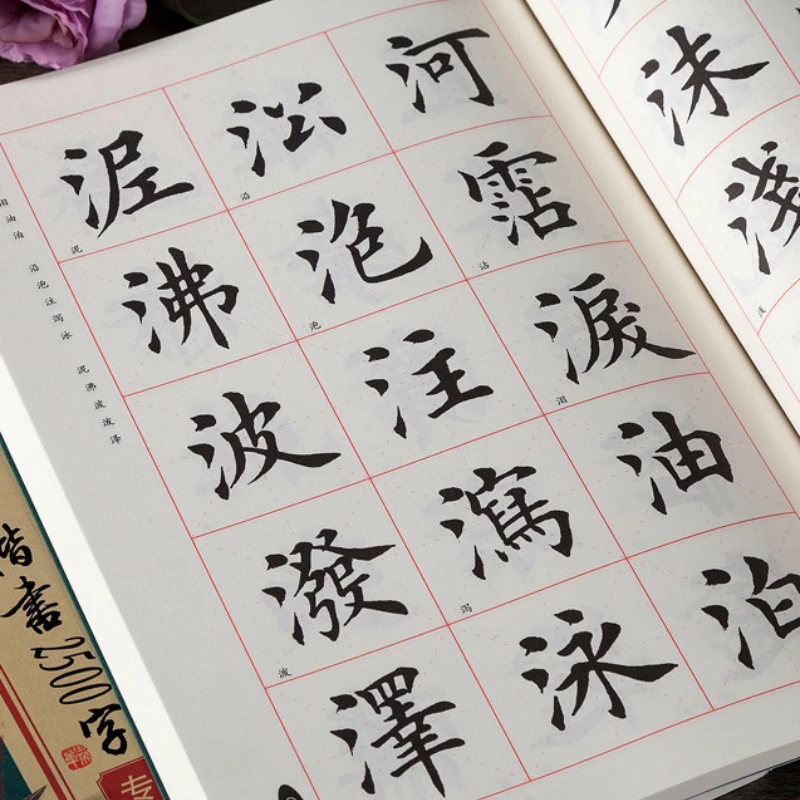 沫
淺
浅
河
霑
沾
淚
泪
油
泊
㳂
沿
泡
泡
注
瀉
泻
泳
泥
泥
沸
波
潑
泼
澤
泪油泊 沿泡注泻泳 泥沸波泼泽
楷書2500字
专